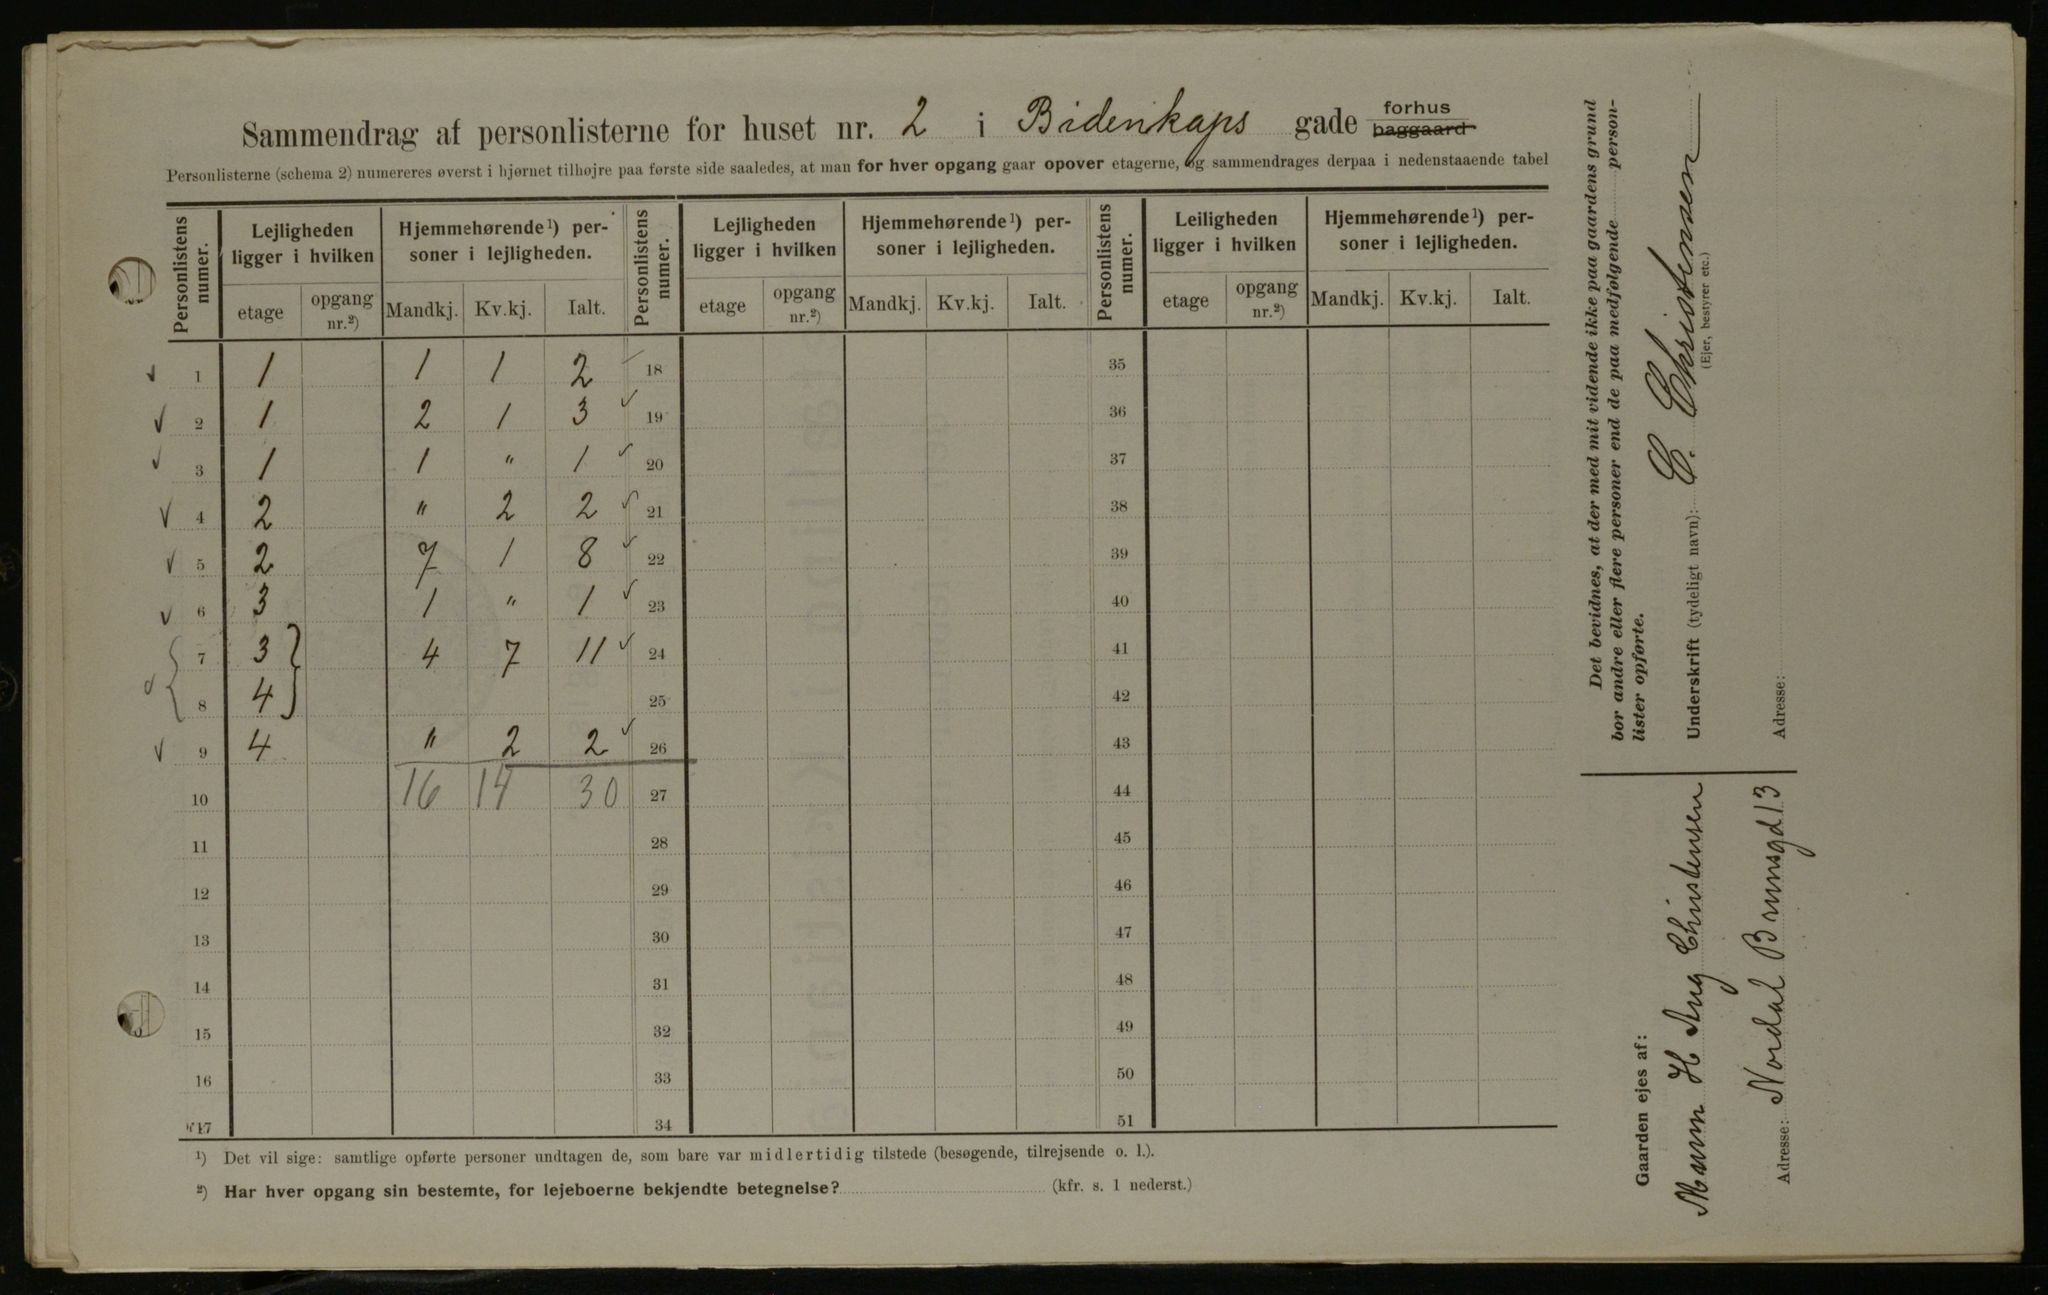 Sammendrag af personlisterne for huset nr. 2 i Bidenkaps gade forhus baggaard
Personlisterne (schema 2) numereres øverst i hjørnet tilhøjre paa første side saaledes, at man for hver opgang gaar opover etagerne, og sammendrages derpaa i nedenstaaende tabel
Personlistens numer. Lejligheden ligger i hvilken Hjemmehørende¹) personer i lejligheden. Personlistens numer. Lejligheden ligger i hvilken Hjemmehørende¹) personer i lejligheden. Personlistens numer. Leiligheden ligger i hvilken Hjemmehørende¹) personer i lejligheden.
etage opgang nr.²) Mandkj. Kv.kj. Ialt. etage opgang nr.²) Mandkj. Kv.kj. Ialt. etage opgang nr.²) Mandkj. Kv.kj. Ialt.
✓ 1 1 1 1 2 ✓ 18 35
✓ 2 1 2 1 3 ✓ 19 36
✓ 3 1 1 " 1 ✓ 20 37
✓ 4 2 " 2 2 ✓ 21 38
✓ 5 2 7 1 8 ✓ 22 39
✓ 6 3 1 " 1 ✓ 23 40
7 3 4 7 11 ✓ 24 41
✓ 8 4 25 42
✓ 9 4 " 2 2 ✓ 26 43
10 16 14 30 27 44
11 28 45
12 29 46
13 30 47
14 31 48
15 32 49
16 33 50
17 34 51
¹) Det vil sige: samtlige opførte personer undtagen de, som bare var midlertidig tilstede (besøgende, tilrejsende o. l.).
²) Har hver opgang sin bestemte, for lejeboerne bekjendte betegnelse? (kfr. s. 1 nederst.)
Det bevidnes, at der med mit vidende ikke paa gaardens grund
bor andre eller flere personer end de paa medfølgende person-
lister opførte.
Underskrift (tydeligt navn): C. Christensen
(Ejer, bestyrer etc.)
Adresse:
Gaarden ejes af:
Murm H Aug Christensen
Adresse: Nordal Brunsgd 13